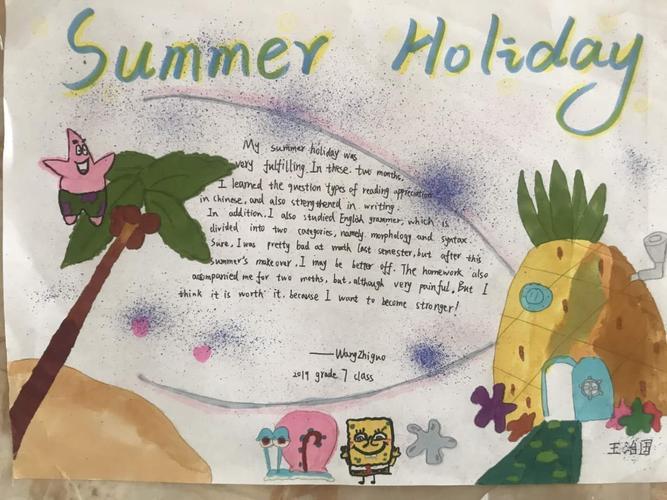 Summer Holiday
My summer holiday was
very fulfilling. In these two months,
I learned the question types of reading appreciation
in chinese, and also strengthened in writing.
In addition, I also studied English grammer, which is
divided into two categories, namely morphology and syntax.
Sure, I was pretty bad at math last semester, but after this
summer's makeover, I may be better off. The homework also
accompanied me for two moths, but, although very painful, But I
think it is worth it, because I want to become stronger!
——WangZhiguo
2019 grade 7 class
王治国